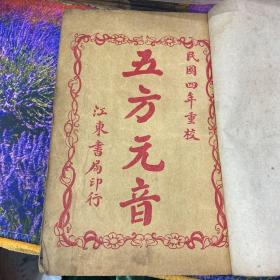 民國四年重校
五方元音
江東書局印行